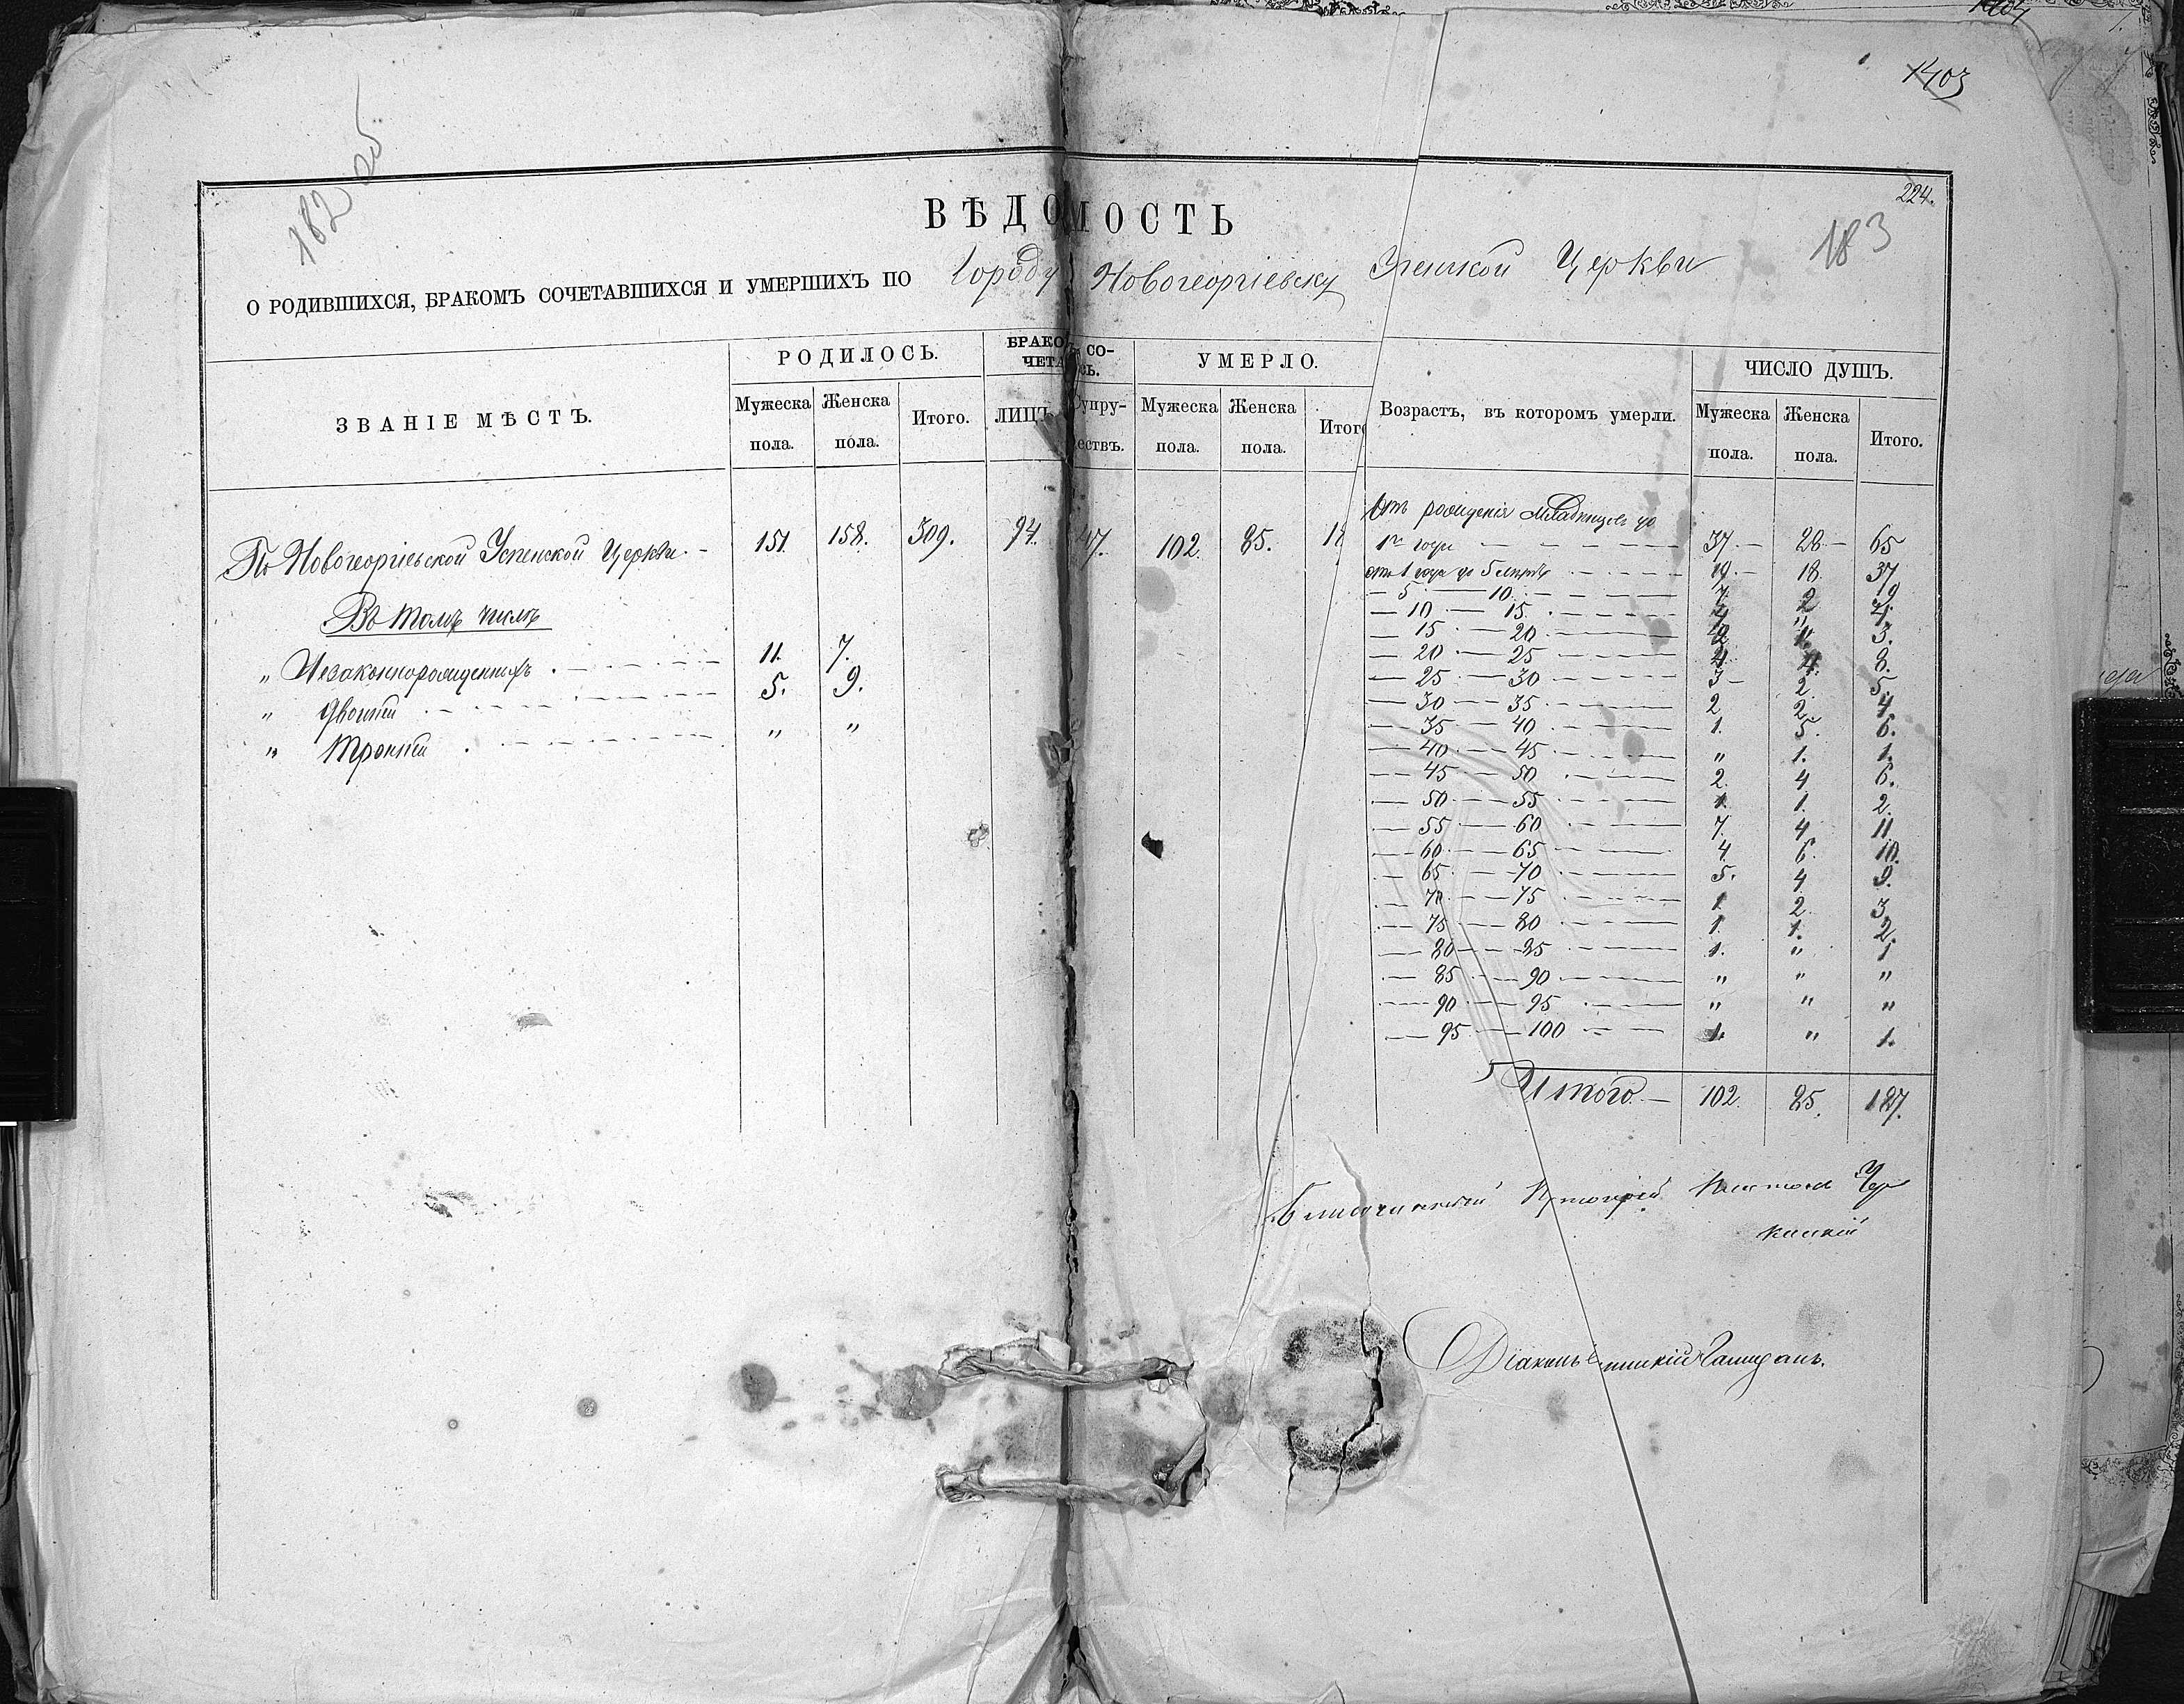 1403
182 об
224.
183
ВѢДОМОСТЬ
О РОДИВШИХСЯ, БРАКОМЪ СОЧЕТАВШИХСЯ И УМЕРШИХЪ ПО Городу Новогеоргіевску Успенской Церкви
ЗВАНІЕ МѢСТЪ.
РОДИЛОСЬ.
Мужеска пола.
Женска пола.
Итого.
БРАКОМЪ СО-
ЧЕТА СЬ.
ЛИЦЪ
Супру-
жествъ.
УМЕРЛО.
Мужеска пола.
Женска пола.
Итого
Возрастъ, въ которомъ умерли.
ЧИСЛО ДУШЪ.
Мужеска пола.
Женска пола.
Итого.
По Новогеоргіевской Успенской Церкви. – 151. 158. 309. 94. 47. 102. 85. 18
Въ томъ числѣ
„ Незаконнорожденныхъ 11. 7.
„ Двойни 5. 9.
„ Тройни „ „
Отъ рожденія младенцевъ до
1го года 37 28 65
отъ 1 года до 5 лѣтъ 19 18. 37
5 — 10 7. 2 9
10 — 15 4. „ 4.
15 — 20 2 1. 3.
20 — 25 4. 4. 8.
25 — 30 3 2. 5.
30 — 35 2 2. 4.
35 — 40 1. 5. 6.
40 — 45 „ 1. 1.
45 — 50 2. 4 6.
50 — 55 1. 1. 2.
55 — 60 7. 4 11.
60 — 65 4. 6. 10.
65 — 70 5. 4 9.
70 — 75 1. 2. 3.
75 — 80 1. 1. 2.
80 — 85 1. „ 1
85 — 90 „ „ „
90 — 95 „ „ „
95 — 100 1. „ 1.
Итого — 102. 85. 187.
Благочинный Протоіерей
Діаконъ